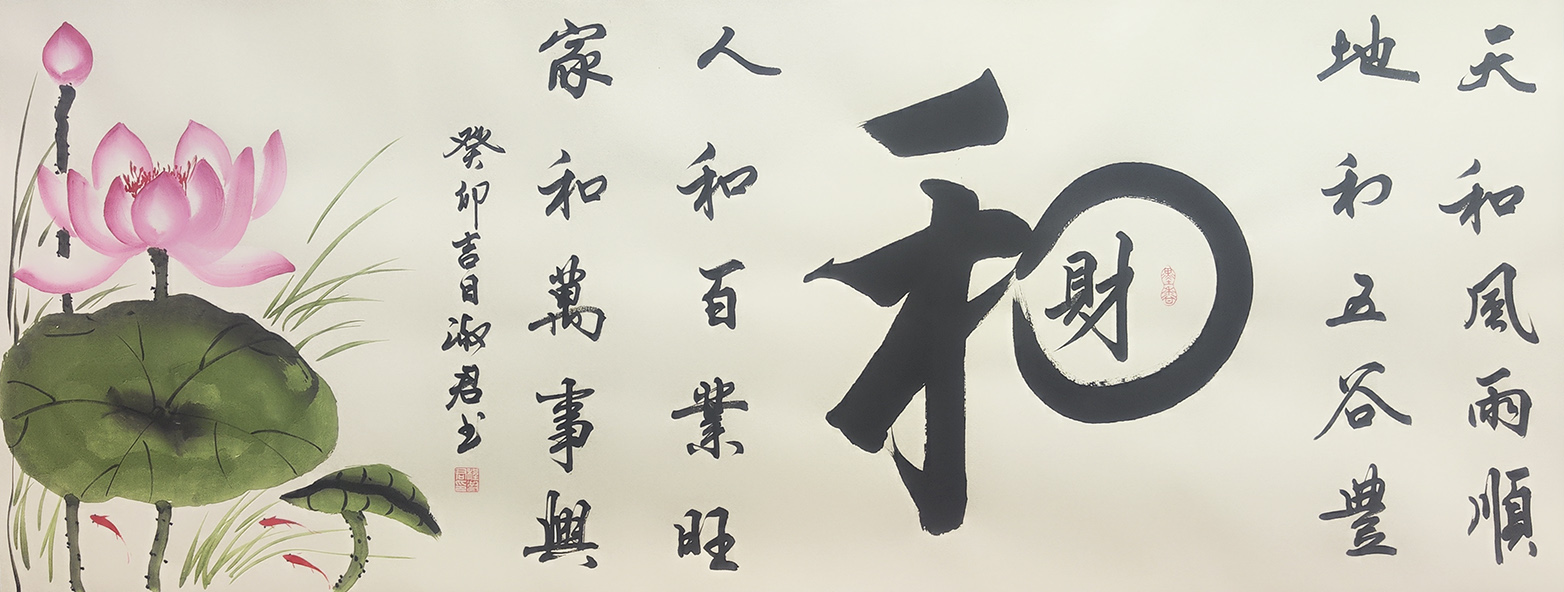 天和風雨順
地和五谷豐
和
財
人和百業旺
家和萬事興
癸卯吉日淑君书